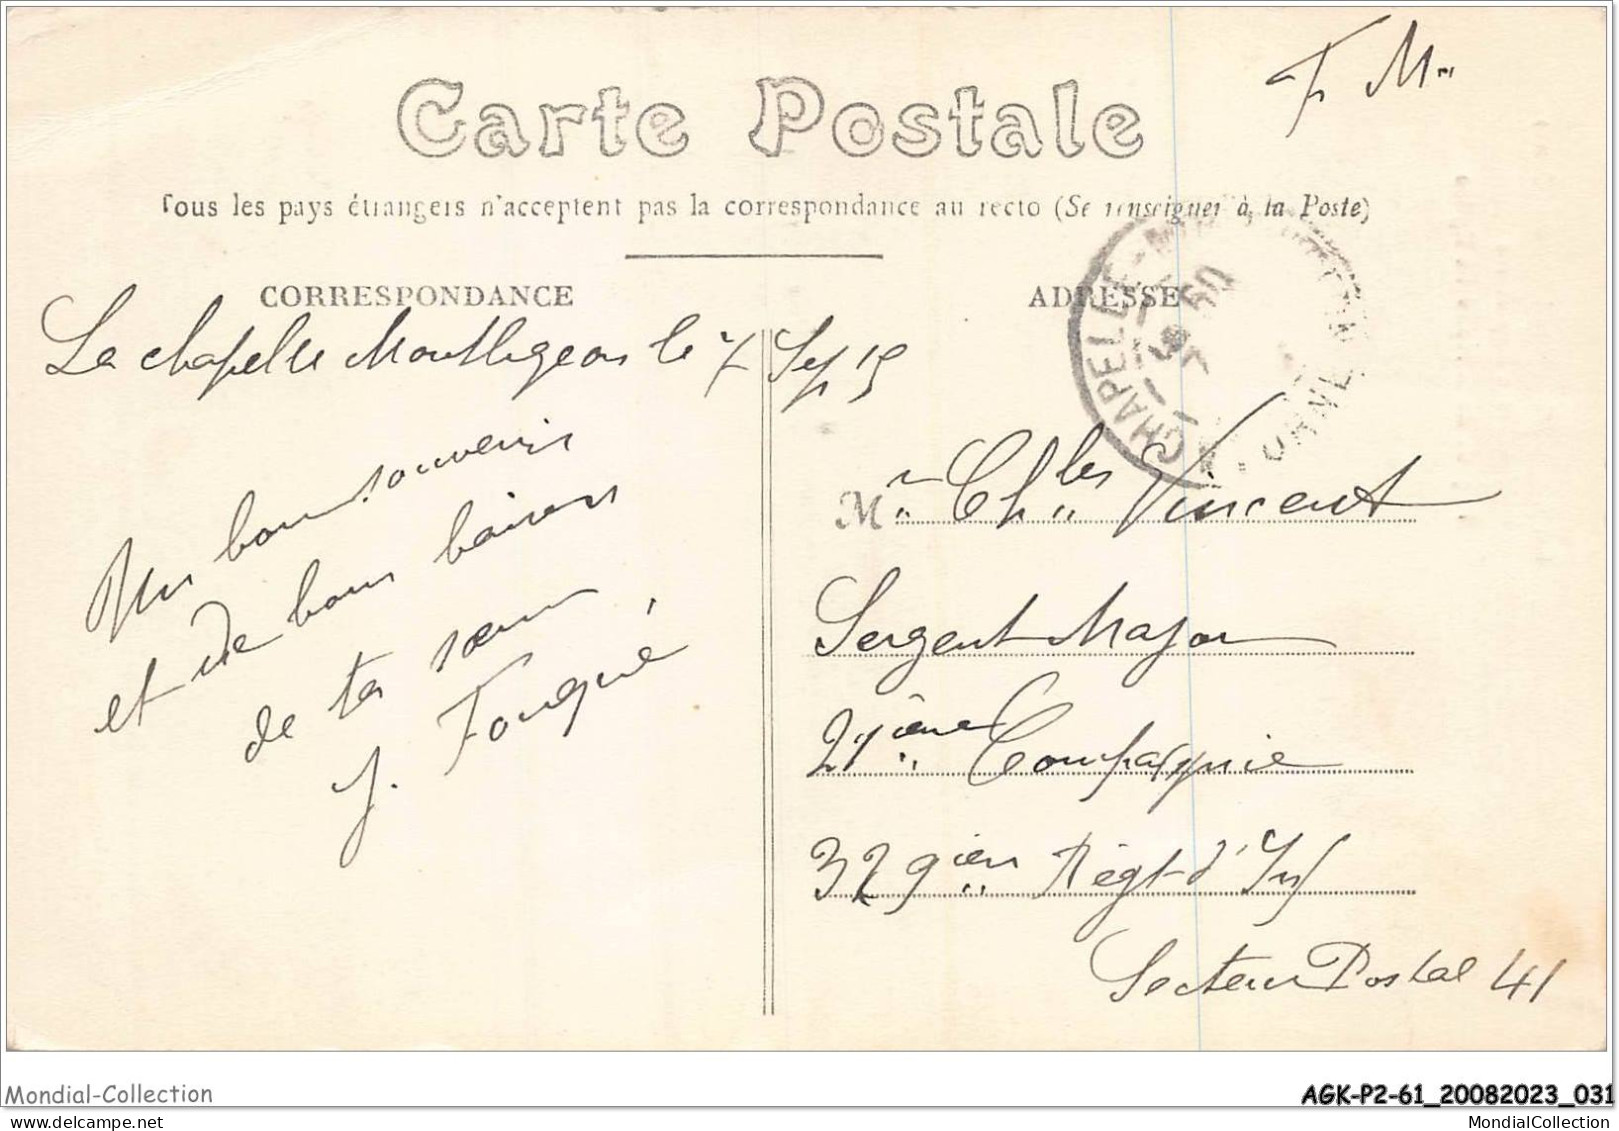 F. M.
Carte Postale
Tous les pays étrangers n'acceptent pas la correspondance au recto (Se renseigner à la Poste)
CORRESPONDANCE
La chapelle Montligeon le 7 Sep 15
Un bon souvenir
et de bons baisers
de ta sœur
J. Fouqué
ADRESSE
CHAPELLE-M
ORNE
Mr Chles Vincent
Sergent Major
21ième Compagnie
329ième Régt d'Inf
Secteur Postal 41
Mondial-Collection
AGK-P2-61_20082023_031
MondialCollection.com
MondialCollection